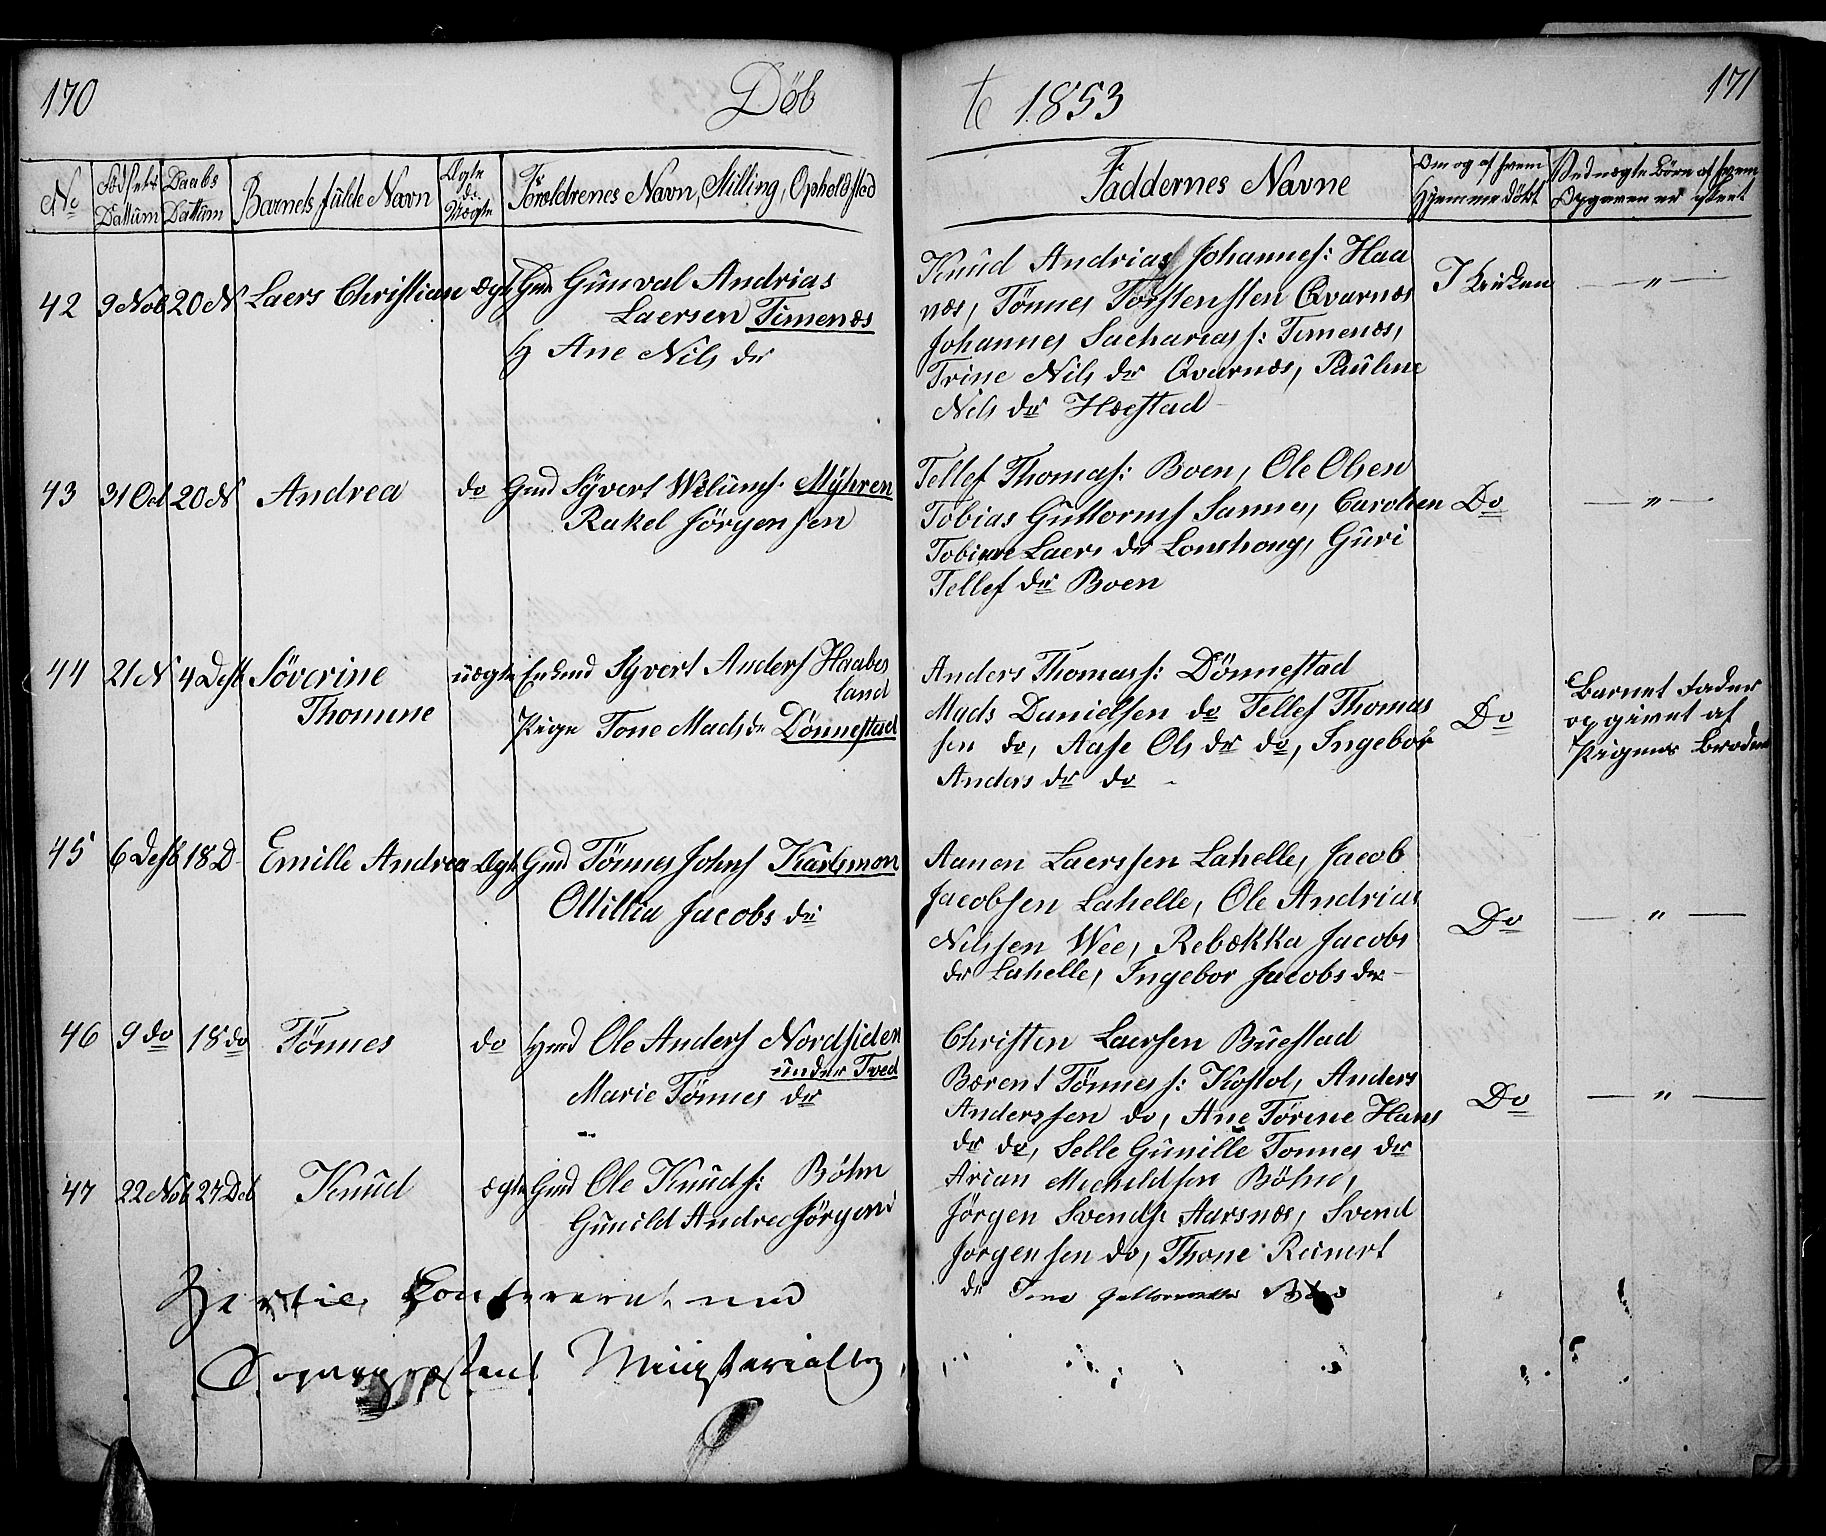 170
Döb
te 1853
171
No
Födsels Dattum
Daabs Dattum
Barnets fulde Navn
Ægte do. Uægte
Foroldrenes Navn, Stilling, Opholdsted
Faddernes Navne
Om og af hvem Hjemmedöbt
Ved uægte Börn af hvem Opgaven er skeet
42 9 Nob 20 N Laers Christian ægt Gmd Gunval Andrias
Laersen Timenæs
H Ane Nils dr
Knud Andrias Johannes: Haa
næs, Tönnes Torstensten Qvarnæs
Johannes Sacharias s: Timenæs,
Trine Nils dr Qvarnæs, Pauline
Nils dr Hæestad
I Kirken
— " —
43 31 Oct 20 N Andrea do Gmd Syvert Wilumf. Myhren
Rakel Jörgensen
Tellef Thomas: Boen, Ole Olsen
Tobias Guttormf Sannes, Carolien
Tobine Laers dr Lonshoug, Guri
Tellef dr Boen
Do
— " —
44 21 N 4 Desb Söverine
Thomine
uægte Enkmd Syvert Anders Haabes
land
Pige Tone Mads dr Dönnestad
Anders Thomass: Dönnestad
Mads Danielsen do Tellef Thomas
sen do, Aase Ols dr do, Ingebor
Anders dr do -
Do
Barnet Fader
opgivet af
Pigens Broder
45 6 Desb 18 D Emille Andrea Ægte Gmd Tönnes Johns Karlsmon
Ottillia Jacobs dr
Aanon Laerssen Lahelle, Jacob
Jacobsen Lahelle, Ole Andrias
Nilssen Wee, Rebækka Jacobs
dr Lahelle, Ingebor Jacobs dr -
Do
— " —
46 9 do 18 do Tönnes do Hmd Ole Anders Nordsiden
under Tved
Marie Tönnes dr
Christen Laersen Buestad
Bærent Tönness: Kostöl, Anders
Anderssen do, Ane Törine Hans
dr do, Selle Gunille Tonnes dr
Do
— " —
47 22 Nob 27 Deb Knud ægte Gmd Ole Knuds: Böhn
Gunild Andrea Jörgens
Arian Micheldsen Böhn,
Jörgen Svends: Aarsnæs, Svend
Jorgensen do, Thone Reinert
dr
Ministerialbog